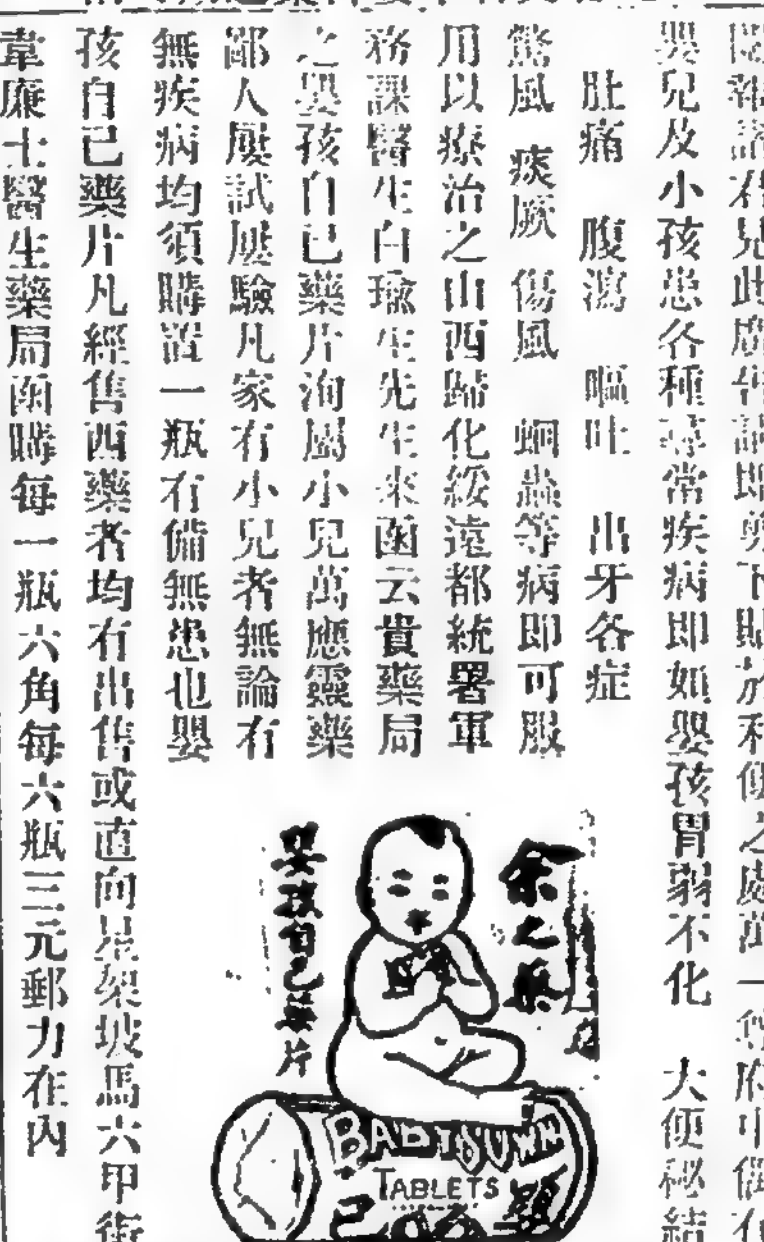 閱報諸君見此廣告請即剪下貼於利便之處萬一尊府中偶有
嬰兒及小孩患各種尋常疾病即如嬰孩胃弱不化 大便秘結
肚痛 腹瀉 嘔吐 出牙各症
驚風 痰厥 傷風 蛔蟲等病即可服
用以療治之山西歸化綏遠都統署軍
務課醫生白瑜生先生來函云貴藥局
之嬰孩自己藥片洵屬小兒萬應靈藥
鄙人屢試屢驗凡家有小兒者無論有
無疾病均須購置一瓶有備無患也嬰
孩自己藥片凡經售西藥者均有出售或直向星架坡馬六甲街
韋廉士醫生藥局函購每一瓶六角每六瓶三元郵力在內
余之
嬰孩自己藥片
BABY'S OWN
TABLETS